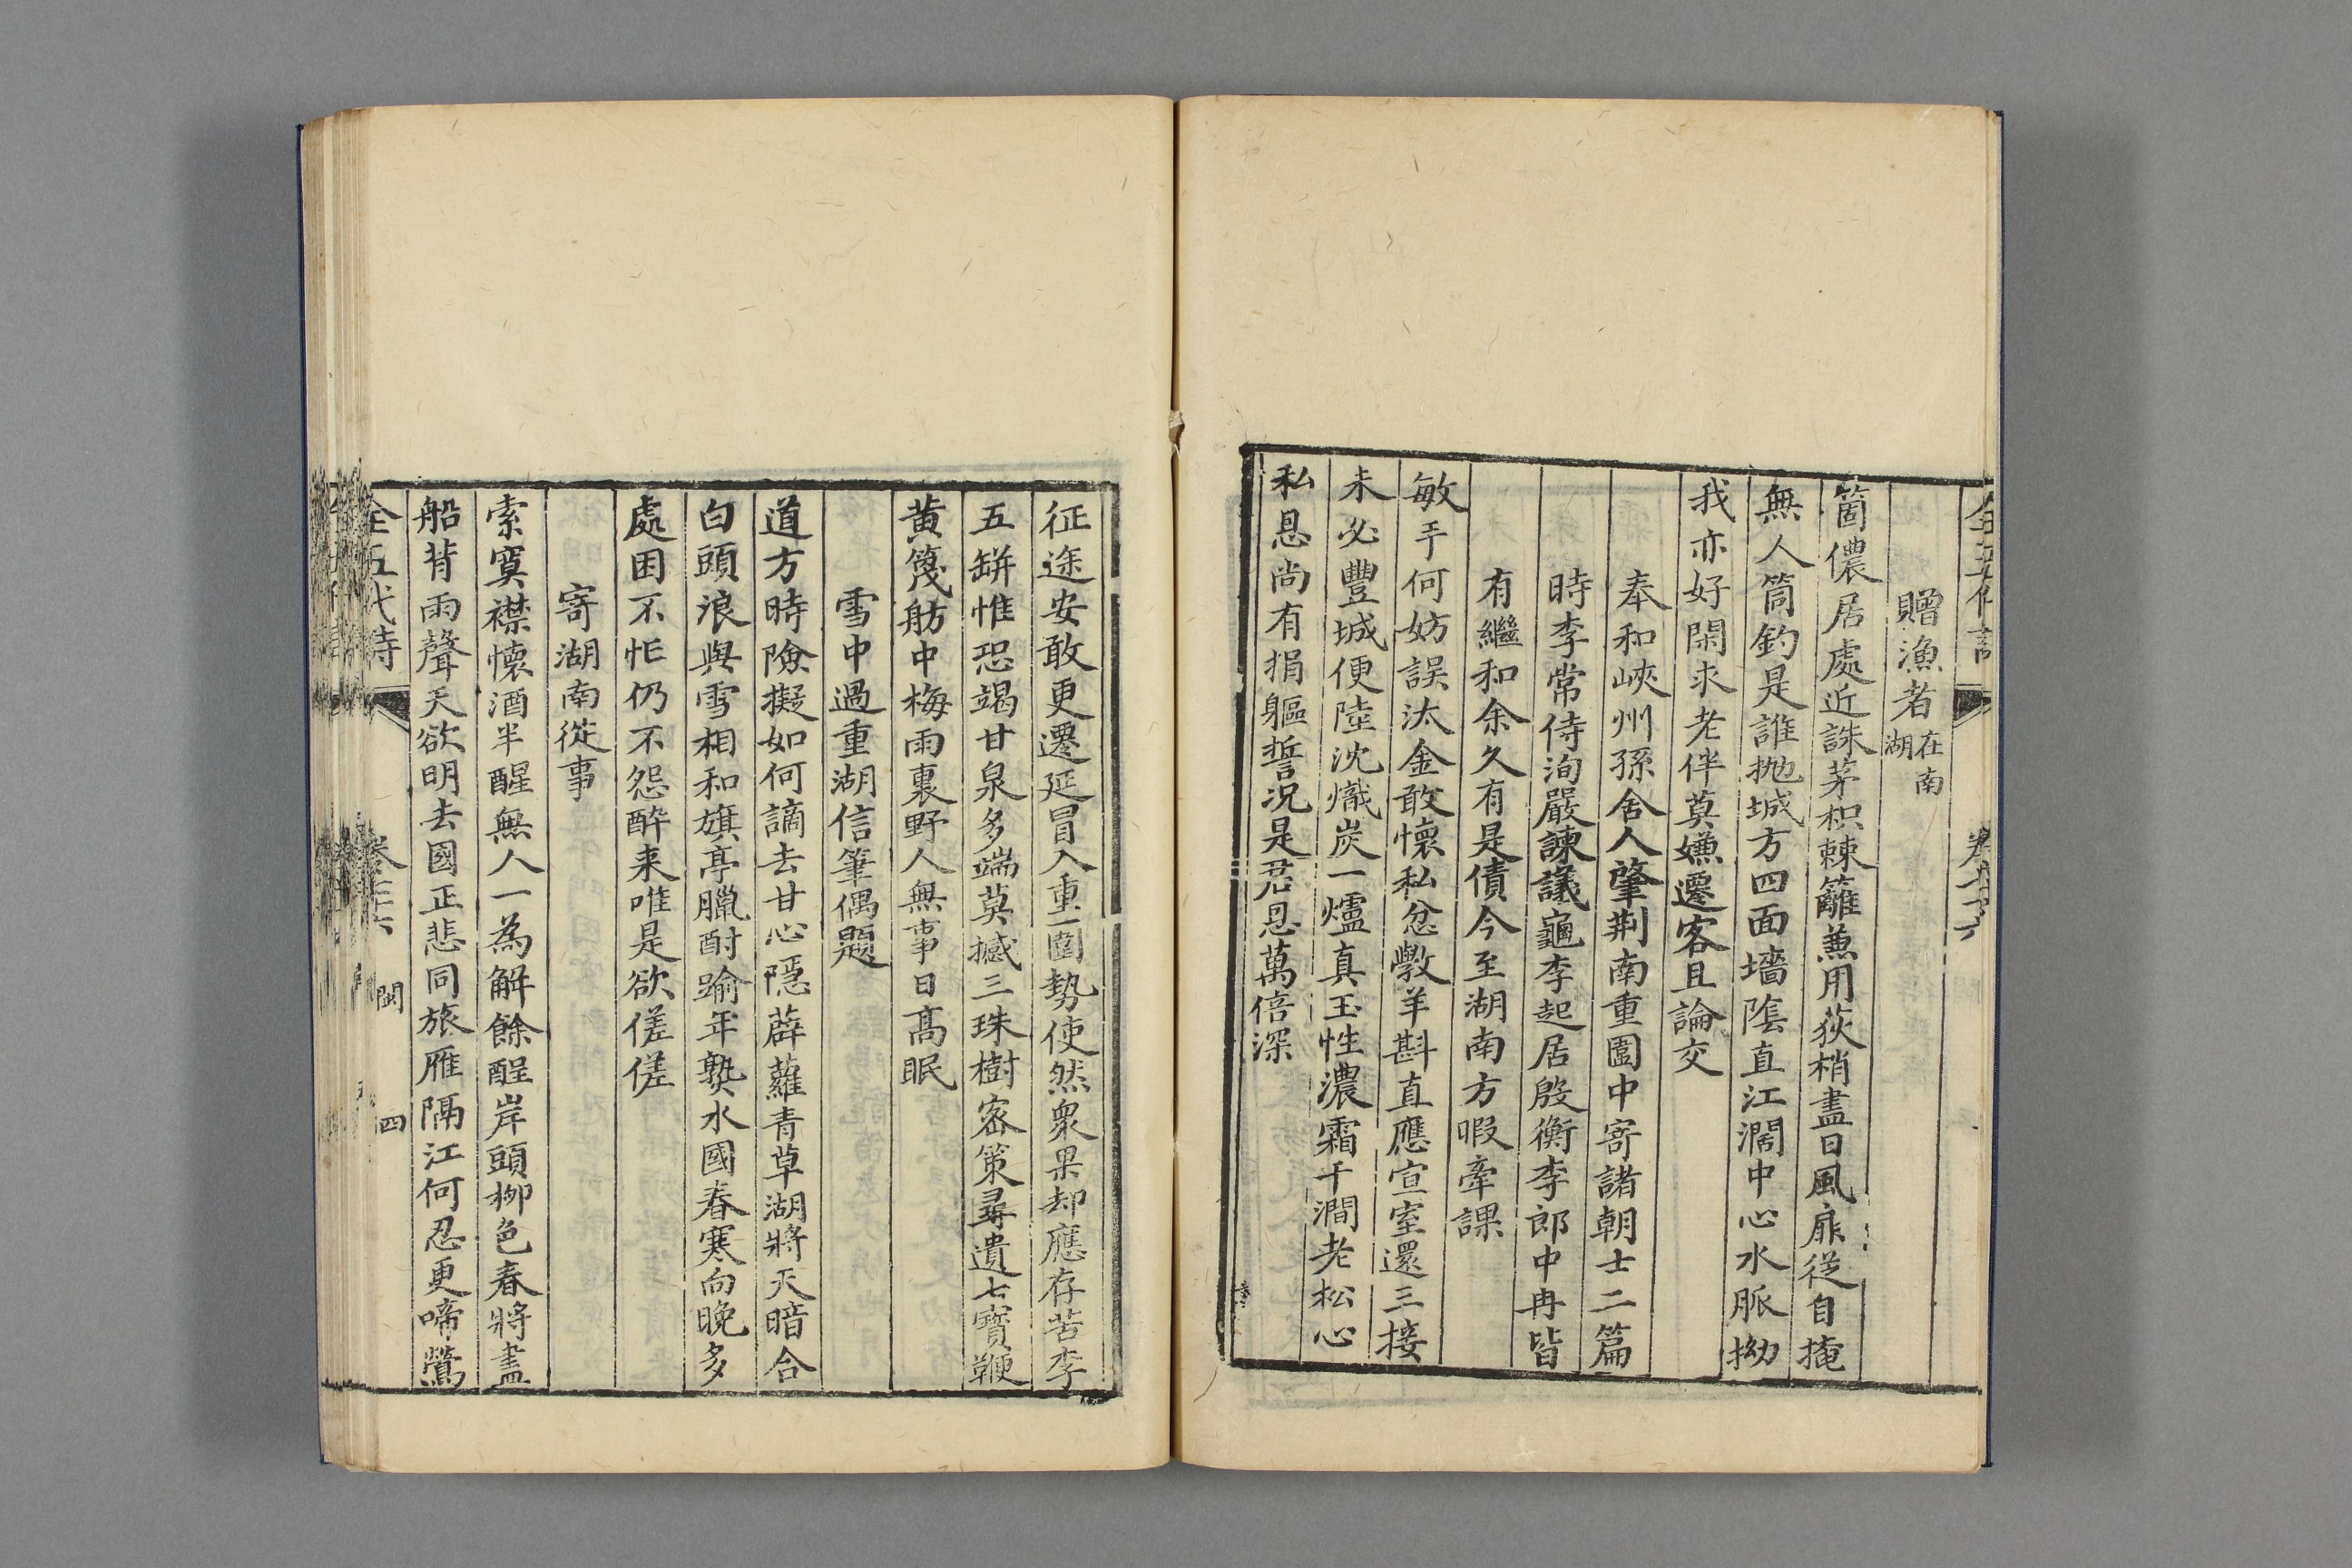 贈漁者在南湖
箇儂居處近誅茅枳棘籬蒹用荻梢盡日風扉從自掩
無人筒釣是誰拋城方四面墻隂直江濶中心水脈拗
我亦好閑求老伴莫嫌遷客且論交
奉和峽州孫舍人肇荆南重圍中寄諸朝士二篇
時李常侍洵嚴諫議龜李起居殷衡李郎中冉皆
有繼和余久有是債今至湖南方暇牽課
敏手何妨誤汰金敢懷私忿斆羊斟直應宣室還三接
未必豐城便陸沈熾炭一爐真玉性濃霜千澗老松心
私恩尚有捐軀誓况是君恩萬倍深
征途安敢更遷延冒入重圍勢使然衆果却應存苦李
五缾惟恐竭甘泉多端莫撼三珠樹密策尋遺七寶鞭
黄篾舫中梅雨裏野人無事日髙眠
雪中過重湖信筆偶題
道方時險擬如何謫去甘心隱薜蘿青草湖將天暗合
白頭浪與雪相和旗亭臘酎踰年熟水國春寒向晚多
處困不忙仍不怨醉来唯是欲傞傞
寄湖南從事
索寞襟懷酒半醒無人一為解餘酲岸頭栁色春將盡
船背雨聲天欲明去國正悲同旅雁隔江何忍更啼鶯
全五代詩
閩 四